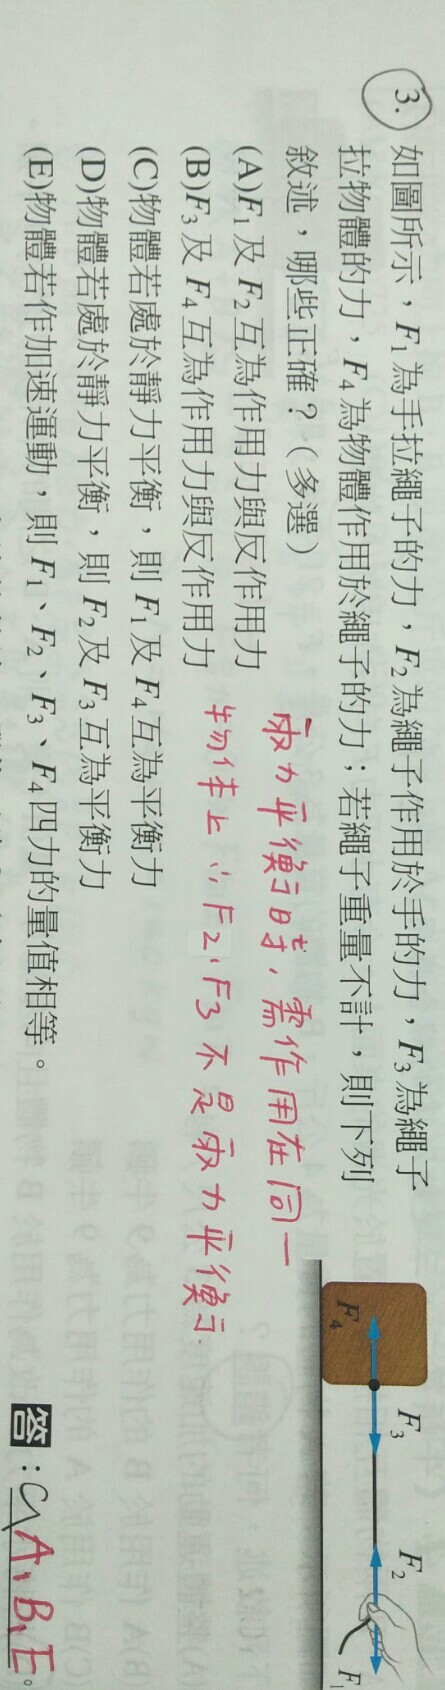 3. 如圖所示，F₁為手拉繩子的力，F₂為繩子作用於手的力，F₃為繩子
拉物體的力，F₄為物體作用於繩子的力；若繩子重量不計，則下列
敘述，哪些正確？（多選）
(A)F₁及F₂互為作用力與反作用力
(B)F₃及F₄互為作用力與反作用力
(C)物體若處於靜力平衡，則F₁及F₄互為平衡力
(D)物體若處於靜力平衡，則F₂及F₃互為平衡力
(E)物體若作加速運動，則F₁、F₂、F₃、F₄四力的量值相等。
兩力平衡時，需作用在同一
物体上 ∴F2、F3不是兩力平衡.
F₄
F₃
F₂
F₁
答：C、A、B、E。